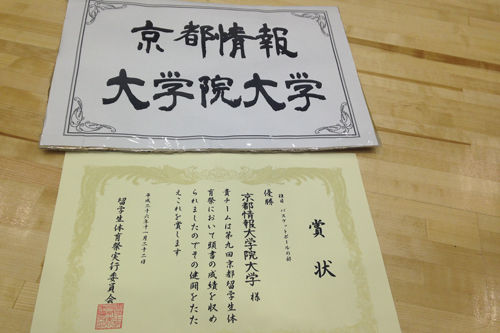 京都情報
大学院大学
賞状
種目 バスケットボールの部
優勝
京都情報大学院大学 様
貴チームは第九回京都留学生体
育祭において頭書の成績を収め
られましたのでその健闘をたた
えこれを賞します
平成二十六年十一月二十二日
留学生体育祭実行委員会